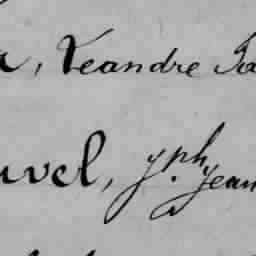 , Léandre
uvel, Jph. Jean